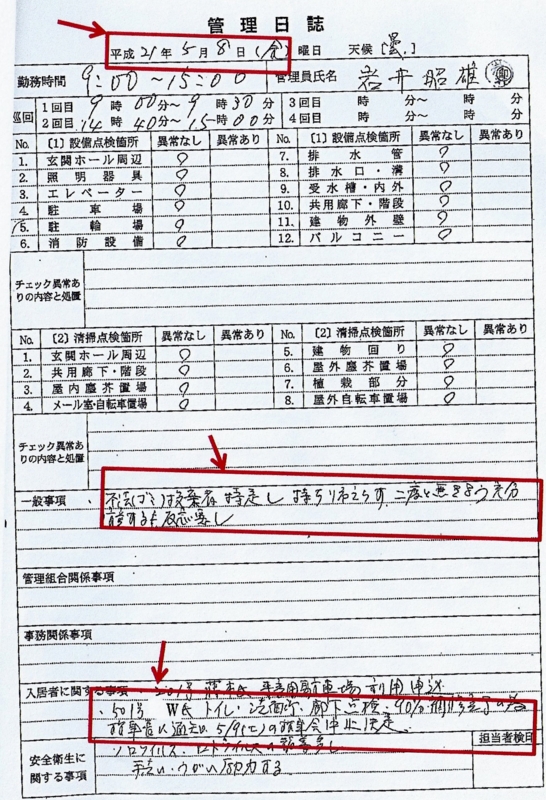 管理日誌
平成 21年 5月 8日 (金) 曜日 天候 [曇]
勤務時間 9:00～15:00 管理員氏名 岩井昭雄
巡回 1回目 9時00分～9時30分 3回目 時 分～ 時 分
2回目 14時40分～15時00分 4回目 時 分～ 時 分
No. [1] 設備点検箇所 異常なし 異常あり No. [1] 設備点検箇所 異常なし 異常あり
1. 玄関ホール周辺 ○ 7. 排水管 ○
2. 照明器具 ○ 8. 排水口・溝 ○
3. エレベーター ○ 9. 受水槽・内外 ○
4. 駐車場 ○ 10. 共用廊下・階段 ○
5. 駐輪場 ○ 11. 建物外壁 ○
6. 消防設備 ○ 12. バルコニー ○
チェック異常ありの内容と処置
No. [2] 清掃点検箇所 異常なし 異常あり No. [2] 清掃点検箇所 異常なし 異常あり
1. 玄関ホール周辺 ○ 5. 建物回り ○
2. 共用廊下・階段 ○ 6. 屋外塵芥置場 ○
3. 屋内塵芥置場 ○ 7. 植栽部分 ○
4. メール室・自転車置場 ○ 8. 屋外自転車置場 ○
チェック異常ありの内容と処置
一般事項 ・不法ゴミ投棄者 特定し 持ち帰えらす 二度と無きよう充分
話すも反応なし
管理組合関係事項
事務関係事項
入居者に関する事項 ・ 号 氏 駐車場 利用申込
・501号 W氏 トイレ・洗面所・廊下 点検 90% 完了の為
理事長に通知 5/9(土)の理事会中止決定
担当者検印
安全衛生に関する事項 ノロウイルス・ロタウイルスの
手洗い・うがい励力する